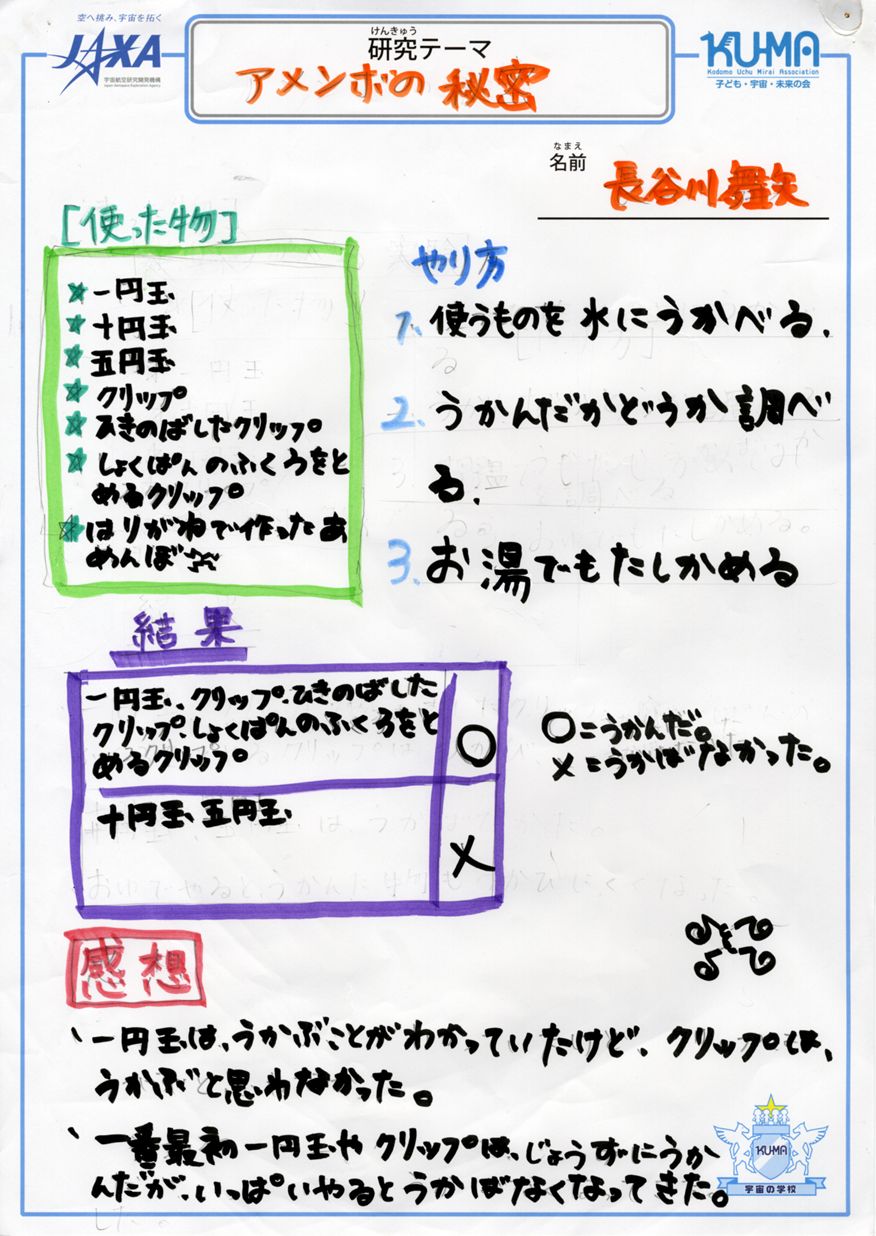 空へ挑み、宇宙を拓く
JAXA
宇宙航空研究開発機構
Japan Aerospace Exploration Agency
けんきゅう
研究テーマ
アメンボの秘密
KU-MA
Kodomo Uchu Mirai Association
子ども・宇宙・未来の会
なまえ
名前
長谷川舞矢
[使った物]
☆一円玉
☆十円玉
☆五円玉
☆クリップ
☆ひきのばしたクリップ
☆しょくぱんのふくろをと
めるクリップ
☆はりがねで作ったあ
めんぼ
やり方
1、使うものを水にうかべる、
2、うかんだかどうか調べ
る、
3、お湯でもたしかめる
結果
一円玉、クリップ、ひきのばした
クリップ、しょくぱんのふくろをと
めるクリップ
○
十円玉、五円玉
×
○=うかんだ。
×=うかばなかった。
感想
、一円玉は、うかぶことがわかっていたけど、クリップは、
うかぶと思わなかった。
、一番最初一円玉やクリップは、じょうずにうか
んだが、いっぱいやるとうかばなくなってきた。
KU-MA
宇宙の学校